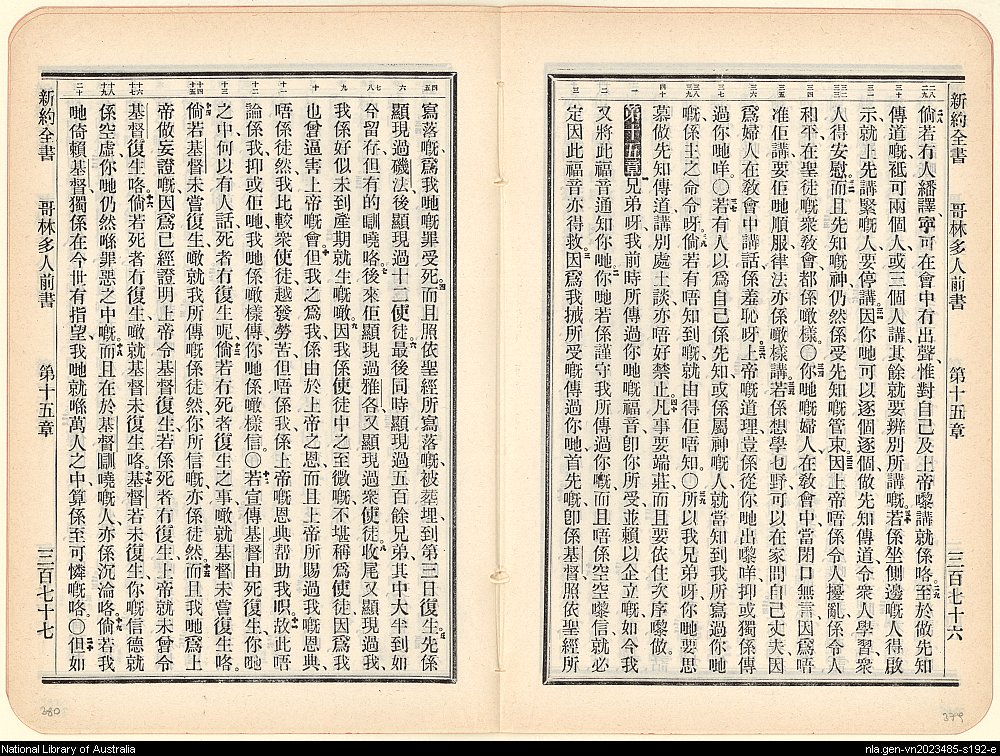 新約全書 哥林多人前書 第十五章 三百七十六
倘若有人繙譯、寧可在會中冇出聲、惟對自己及上帝嚟講就係咯至於做先知
傳道嘅祗可兩個人或三個人講其餘就要辨別所講嘅若係坐側邊嘅人得啟
示就上先講緊嘅人要停講因你哋可以逐個逐個做先知傳道令衆人學習衆
人得安慰而且先知嘅神仍然係受先知嘅管束因上帝唔係令人擾亂係令人
和平在聖徒嘅衆教會都係噉樣〇你哋嘅婦人在教會中當閉口無言因爲唔
准佢講要佢哋順服律法亦係噉樣講若係想學乜野可以在家問自己丈夫因
爲婦人在教會中講話係羞恥呀上帝嘅道理豈係從你哋出嚟咩抑或獨係傳
過你哋咩〇若有人以爲自己係先知或係屬神嘅人就當知到我所寫過你哋
嘅係主之命令呀倘若有唔知到嘅就由得佢唔知〇所以我兄弟呀你哋要思
慕做先知傳道講別處土談亦唔好禁止凡事要端莊而且要依住次序嚟做
第十五章兄弟呀我前時所傳過你哋嘅福音卽你所受並賴以企立嘅如今我
又將此福音通知你哋你哋若係謹守我所傳過你嘅而且唔係空空嚟信就必
定因此福音亦得救因爲我㨂所受嘅傳過你哋首先嘅卽係基督照依聖經所
寫落嘅爲我哋嘅罪受死而且照依聖經所寫落嘅被葬埋到第三日復生先係
顯現過磯法後顯現過十二使徒最後同時顯現過五百餘兄弟其中大半到如
今留存但有的瞓曉咯後來佢顯現過雅各又顯現過衆使徒收尾又顯現過我
我係好似未到產期就生嘅噉因我係使徒中之至微嘅不堪稱爲使徒因爲我
也曾逼害上帝嘅會但我之爲我係由於上帝之恩而且上帝所賜過我嘅恩典
唔係徒然我比較衆使徒越發勞苦但唔係我係上帝嘅恩典帮助我啫故此唔
論係我抑或佢哋我哋係噉樣傳你哋係噉樣信〇若宣傳基督由死復生你哋
之中何以有人話死者冇復生呢倘若冇死者復生之事噉就基督未嘗復生咯
倘若基督未嘗復生噉就我所傳嘅係徒然你所信嘅亦係徒然而且我哋爲上
帝做妄證嘅因爲已經證明上帝令基督復生若係死者冇復生上帝就未曾令
基督復生咯倘若死者冇復生噉就基督未復生咯基督若未復生你嘅信德就
係空虛你哋仍然喺罪惡之中嘅而且在於基督瞓曉嘅人亦係沉淪咯倘若我
哋倚賴基督獨係在今世有指望我哋就喺萬人之中算係至可憐嘅咯〇但如
新約全書 哥林多人前書 第十五章 三百七十七
380
379
National Library of Australia
nla.gen-vn2023485-s192-e